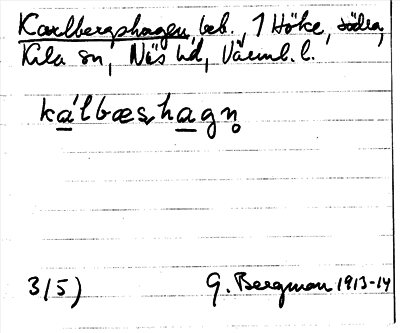 Karlbergshagen, beb., 1 Höke, södra,
Kila sn, Näs hd, Värml. l.
ka̱´lbæsha̱gn̥
3/5) G. Bergman 1913-14